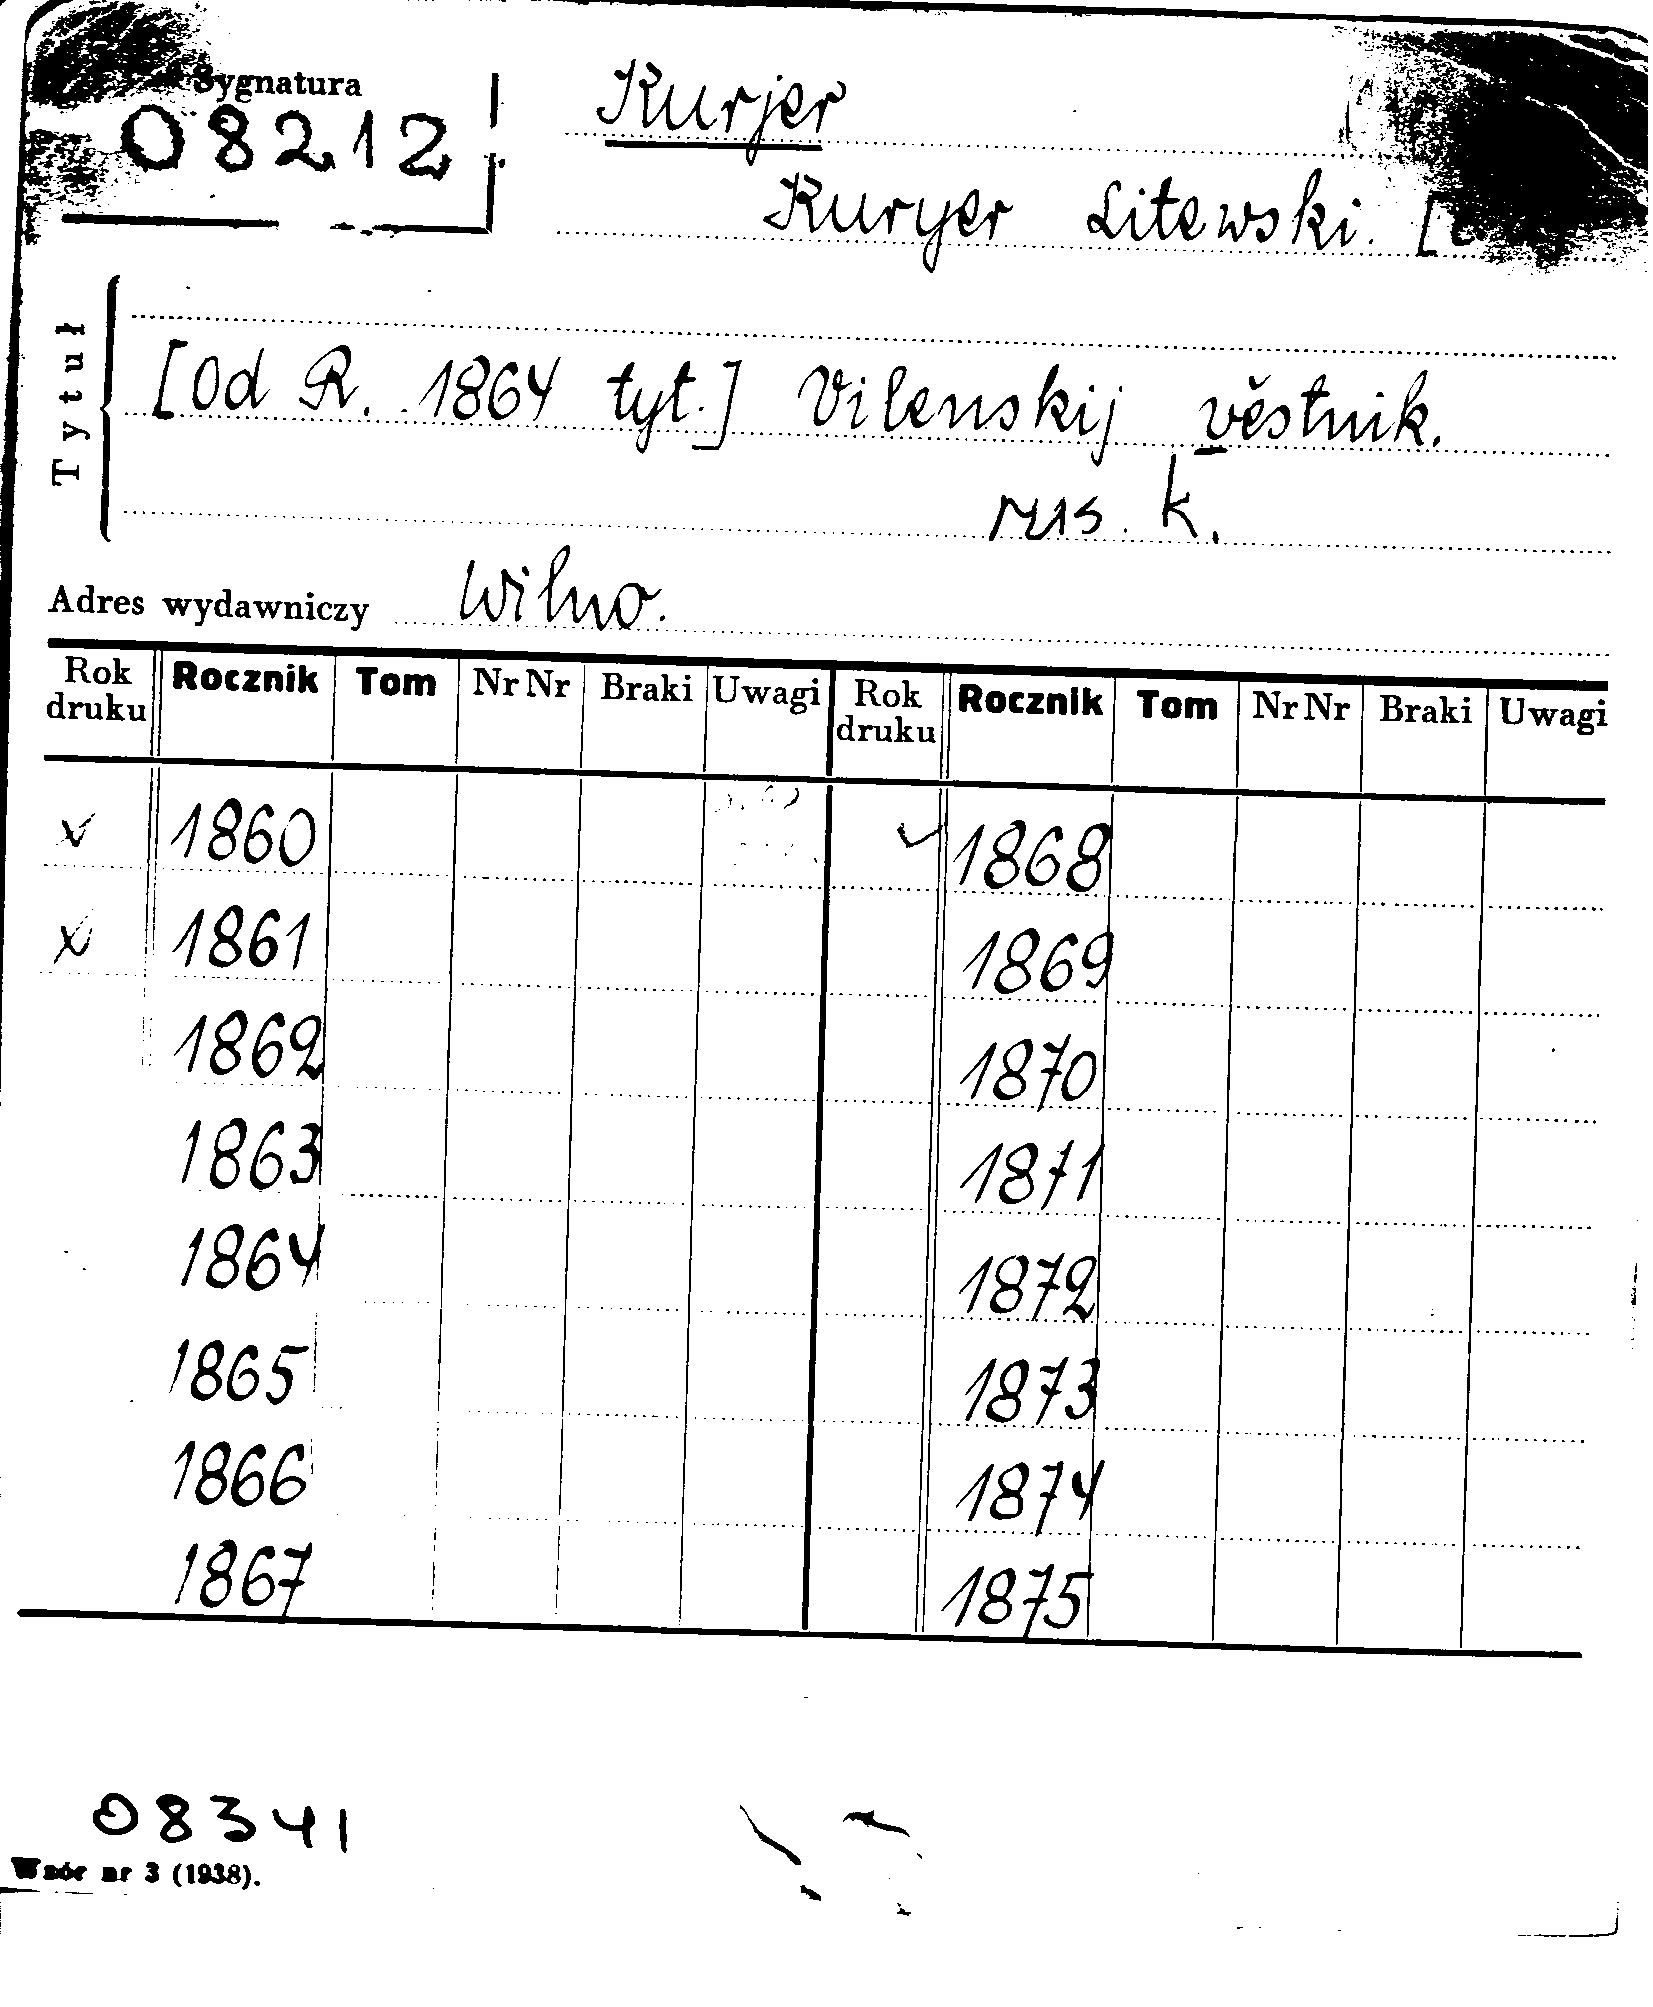 Sygnatura
08212
Kurjer
Kuryer Litewski. [
Tytuł
[Od R. 1864 tyt.] Vilenskij věstnik.
rus. k.
Adres wydawniczy Wilno.
Rok druku Rocznik Tom Nr Nr Braki Uwagi Rok druku Rocznik Tom Nr Nr Braki Uwagi
x 1860 ✓ 1868
x 1861 1869
1862 1870
1863 1871
1864 1872
1865 1873
1866 1874
1867 1875
08341
Wzór nr 3 (1938).